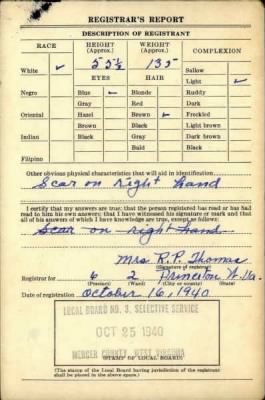 REGISTRAR'S REPORT
DESCRIPTION OF REGISTRANT
RACE HEIGHT (Approx.) WEIGHT (Approx.) COMPLEXION
White ✓ 5 5½ 135 Sallow
EYES HAIR Light ✓
Negro Blue ✓ Blonde Ruddy
Gray Red Dark
Oriental Hazel Brown ✓ Freckled
Brown Black Light brown
Indian Black Gray Dark brown
Bald Black
Filipino
Other obvious physical characteristics that will aid in identification
Scar on right hand
I certify that my answers are true; that the person registered has read or has had
read to him his own answers; that I have witnessed his signature or mark and that
all of his answers of which I have knowledge are true, except as follows:
Scar on right hand
Mrs R.P. Thomas
(Signature of registrar)
Registrar for 6 2 Princeton W.Va.
(Precinct) (Ward) (City or county) (State)
Date of registration October 16, 1940
LOCAL BOARD NO. 3, SELECTIVE SERVICE
OCT 25 1940
MERCER COUNTY, WEST VIRGINIA
(STAMP OF LOCAL BOARD)
(The stamp of the Local Board having jurisdiction of the registrant
shall be placed in the above space.)